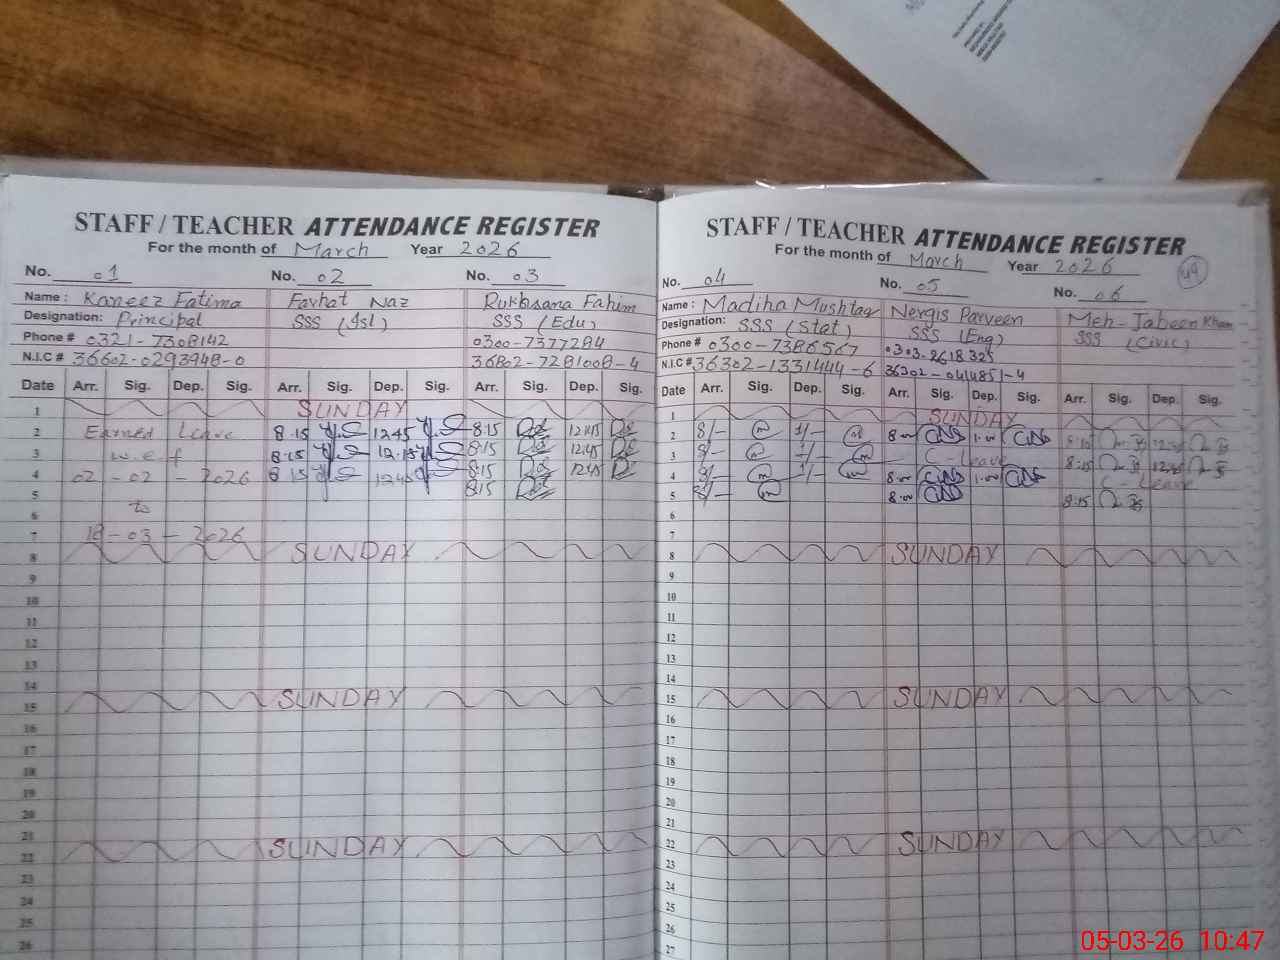 STAFF / TEACHER ATTENDANCE REGISTER
For the month of March Year 2026
No. 01 No. 02 No. 03
Name : Kaneez Fatima Farhat Naz Rukhsana Fahim
Designation: Principal SSS (Isl) SSS (Edu)
Phone # 0321-7308142 0300-7377284
N.I.C # 36602-0293948-0 36802-7281008-4
Date Arr. Sig. Dep. Sig. Arr. Sig. Dep. Sig. Arr. Sig. Dep. Sig.
1 SUNDAY
2 Earned Leave 8.15 1245 8.15 12:45
3 w.e.f 8.15 12.15 8:15 12:45
4 02-02-2026 8.15 1245 8:15 12:45
5 to 8.15
6
7 18-03-2026
8 SUNDAY
9
10
11
12
13
14
15 SUNDAY
16
17
18
19
20
21
22 SUNDAY
23
24
25
26
STAFF / TEACHER ATTENDANCE REGISTER
For the month of March Year 2026
49
No. 04 No. 05 No. 06
Name : Madiha Mushtaq Nergis Parveen Meh-Jabeen Khan
Designation: SSS (Stat) SSS (Eng) SSS (Civic)
Phone # 0300-7386567 0303-2618325
N.I.C # 36302-1331444-6 36302-0414851-4
Date Arr. Sig. Dep. Sig. Arr. Sig. Dep. Sig. Arr. Sig. Dep. Sig.
1 SUNDAY
2 8/- 1/- 8.00 1.00 8.15 12.45
3 8/- 1/- C-Leave 8.15 12.45
4 8/- 1/- 8.00 1.00 C-Leave
5 8/- 8.00 8.15
6
7
8 SUNDAY
9
10
11
12
13
14
15 SUNDAY
16
17
18
19
20
21
22 SUNDAY
23
24
25
26
27
05-03-26 10:47